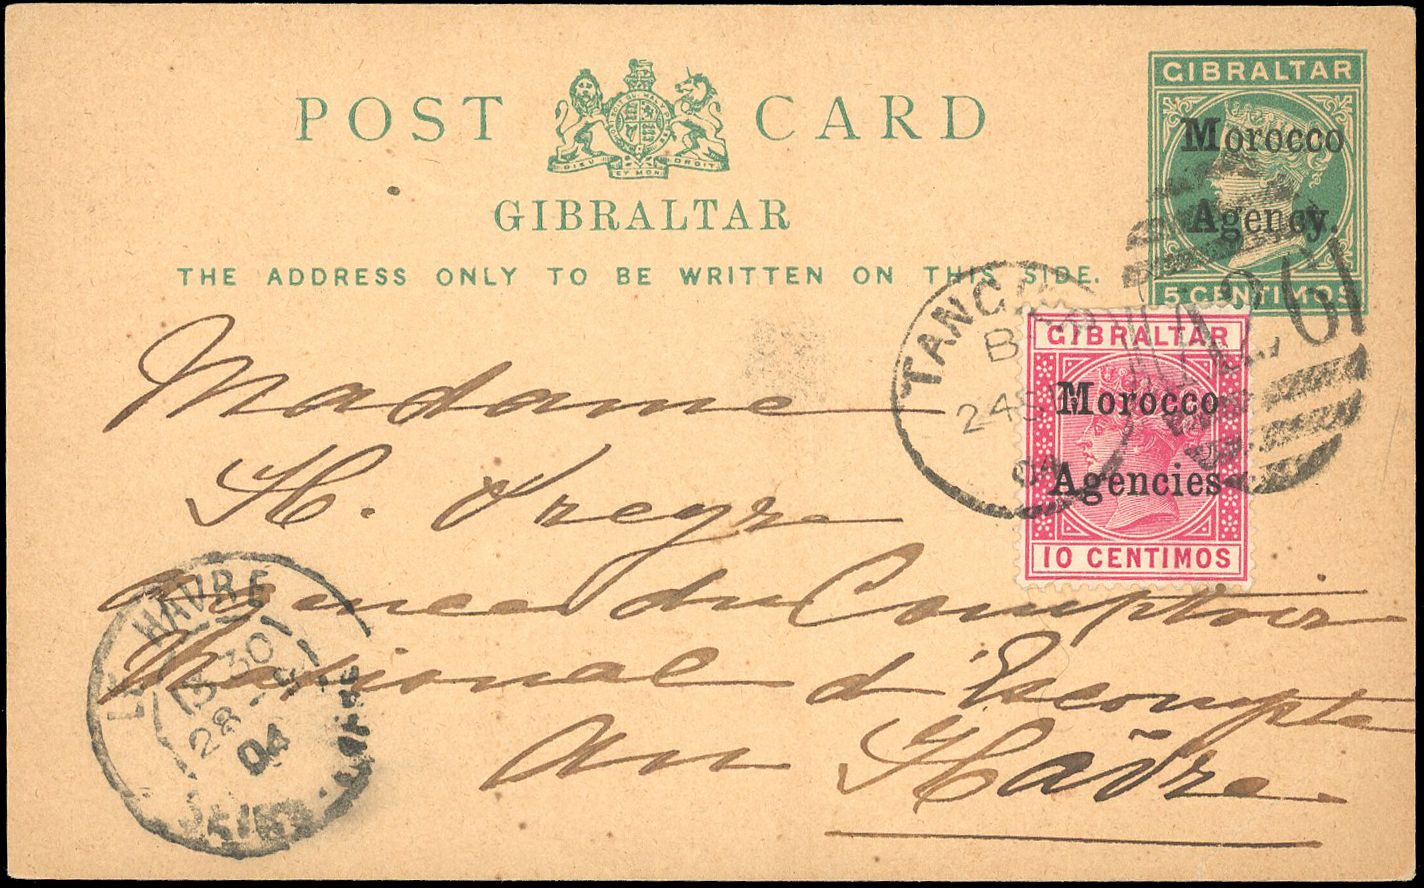 POST CARD
DIEU ET MON DROIT
GIBRALTAR
THE ADDRESS ONLY TO BE WRITTEN ON THIS SIDE.
GIBRALTAR
Morocco
Agency.
5 CENTIMOS
GIBRALTAR
Morocco
Agencies
10 CENTIMOS
TANG
B
24 S
04
A26
Madame
H. Vreyre
Agence du Comptoir
National d'Escompte
au Havre
LE HAVRE
30
28 - 9
04